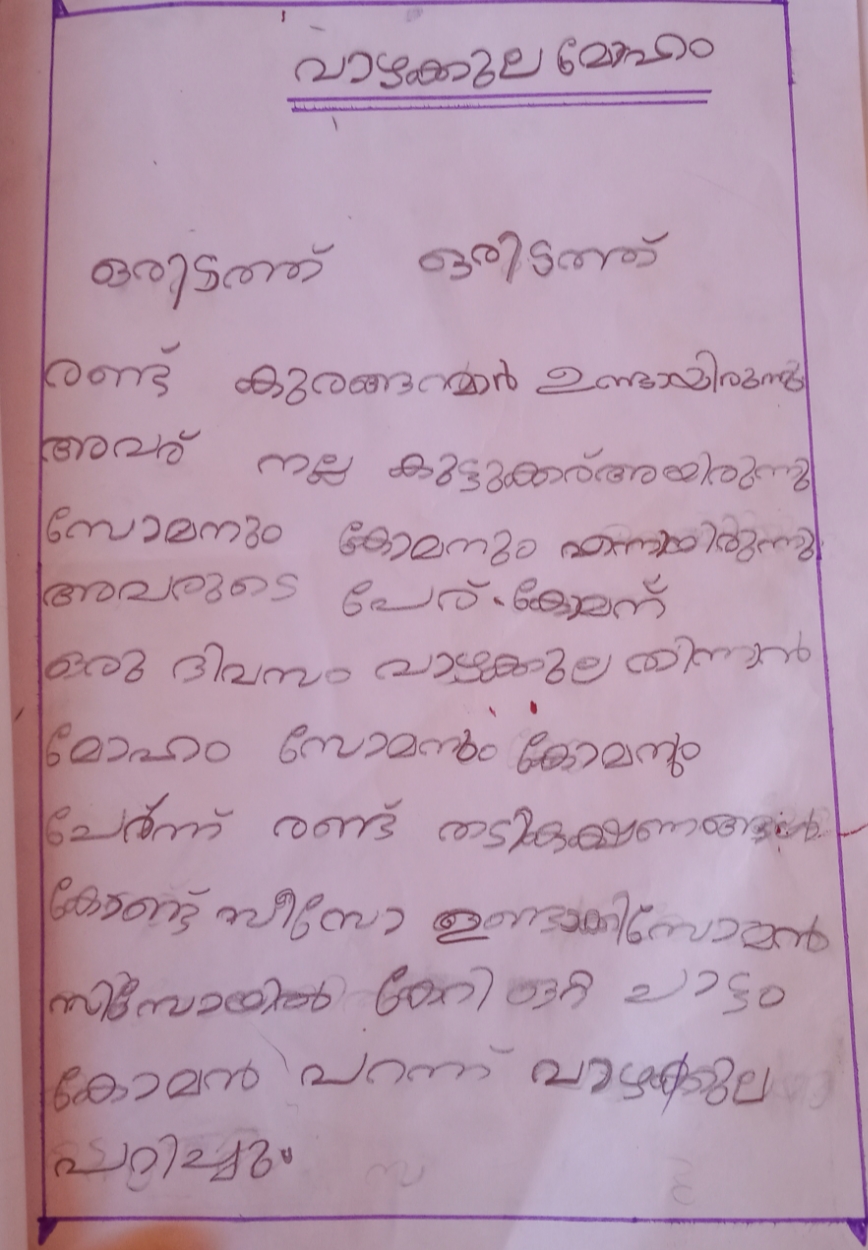 വാഴക്കുല മോഹം
ഒരിടത്ത് ഒരിടത്ത്
രണ്ട് കുരങ്ങന്മാർ ഉണ്ടായിരുന്നു
അവര് നല്ല കുട്ടുക്കര്അയിരുന്നു
സോമനും കോമനും എന്നായിരുന്നു
അവരുടെ പേര്. കോമന്
ഒരു ദിവസം വാഴക്കുല തിന്നാൻ
മോഹം സോമനും കോമനും
ചേർന്ന് രണ്ട് തടികഷണങ്ങൾ
കോണ്ട് സീസോ ഇണ്ടാക്കിസോമൻ
സീസോയിൽ കേറി ഒറ്റ ചാട്ടം
കോമൻ പറന്ന് വാഴക്കുല
പറിച്ചു.